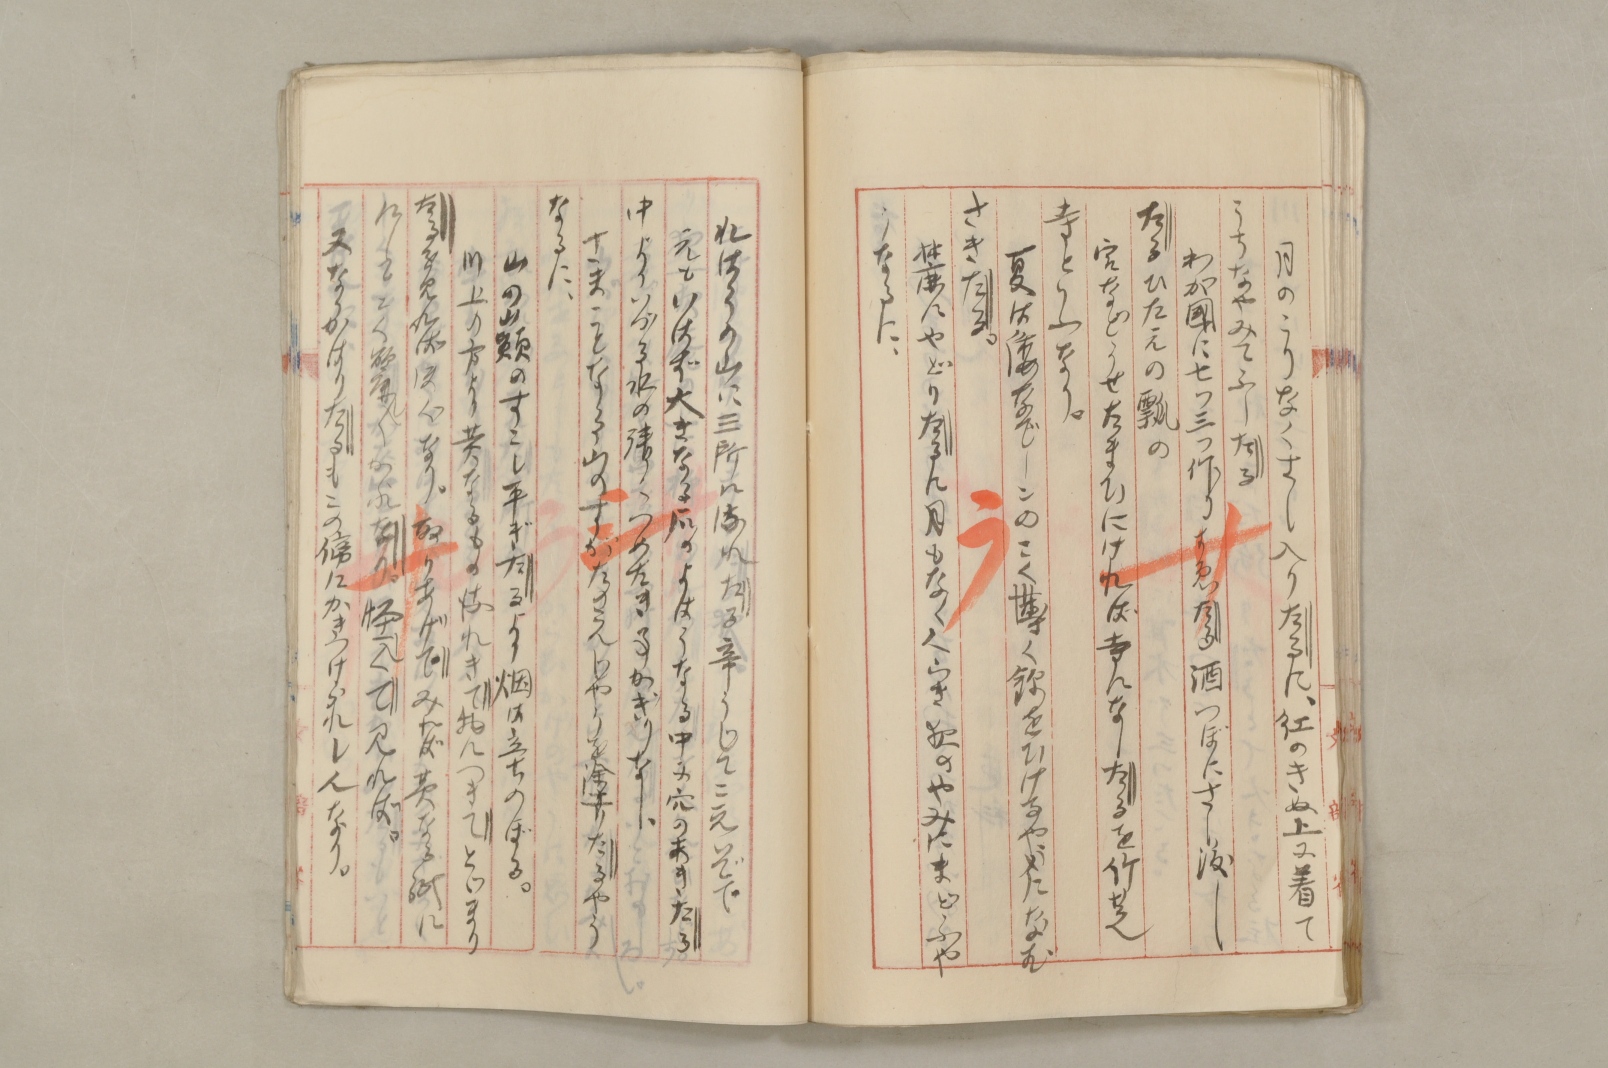 月のこりなくさし入りたるに、紅のきぬ上に着て
うちなやみてふしたる
わが國に七つ三つ作りすゑたる酒つぼにさし渡し
たるひたえの瓢の
宮などうせたまひにければ寺になしたるを竹芝
寺といふなり。
夏は倭なでしこのこく薄く錦をひけるやうになむ
さきたる。
麓にやどりたるに月もなくくらき夜のやみにまどふや
うなるに、
れはうの山に三所になれたる辛うじてこえいでて
えもいはず大きなる石のよはうなる中に穴のあきたる
中よりいづる水の清くつめたき事かぎりなし、
さまことなる山のすがたのこんじやうを塗りたるやう
なるに、
山の山頭のすこし平ぎたるより烟は立ちのぼる。
川上の方より黄なるもの流れきて物につきてとどまり
たるを見ればほぐなり。取りあげてみれば黄なる紙に
怪くて見れば。
又なりかはりたるもこの傍にかきつけられしんなり。
サ
ラ
シ
ナ